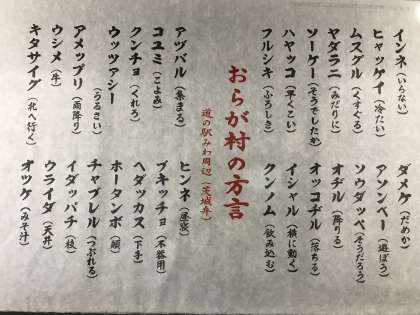 インネ（いらない）
ヒャッケイ（冷たい）
ムスグル（くすぐる）
ヤダラニ（みだりに）
ソーケー（そうでしたか）
ハヤッコ（早くこい）
フルシキ（ふろしき）
ダメケ（だめか）
アソンベー（遊ぼう）
ソウダッペ（そうだろう）
オヂル（降りる）
オッコヂル（落ちる）
イシャル（横に動く）
クンノム（飲み込む）
おらが村の方言
道の駅みわ周辺（茨城弁）
アヅバル（集まる）
コユミ（こよみ）
クンチョ（くれろ）
ウッツァシー（うるさい）
アメップリ（雨降り）
ウシメ（牛）
キタサイグ（北へ行く）
ヒンネ（昼寝）
ブキッチョ（不器用）
ヘダッカス（下手）
ホータンボ（頬）
チャブレル（つぶれる）
イダッパチ（枝）
ウライダ（天井）
オツケ（みそ汁）